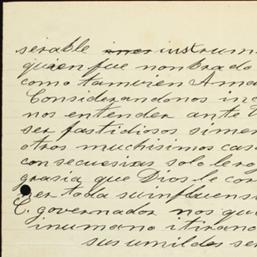 serable instrum
quien fue nombrado
como tambien Ama
Considerandonos inc
nos entender ante
ser fastidiosos simen
otros muchisimos cas
consecuesias solo lerog
grasia que Dios le con
ser toda suinfluensi
E. governador nos qu
inumano itirano
sus umildes ser